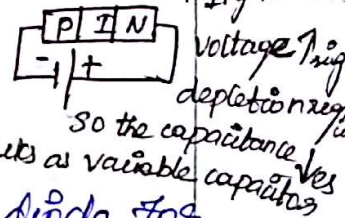 P I N
- +
voltage ↑
depletion
so the capacitance ↓es
as variable capacitor
diode